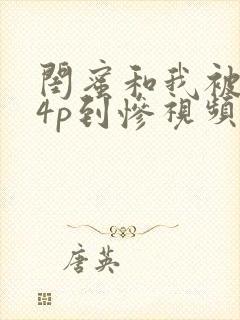 閨蜜和我被
4p到慘視頻
唐英